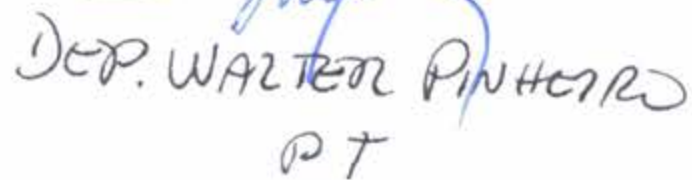 DEP. WALTER PINHEIRO
PT